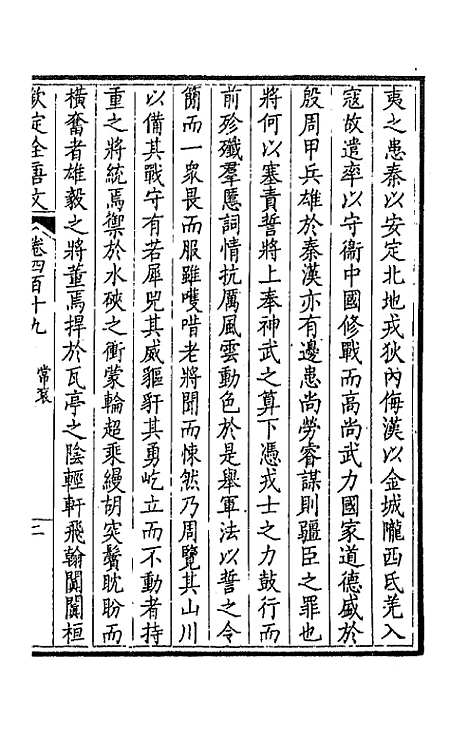 夷之患秦以安定北地戎狄內侮漢以金城隴西氐羌入
寇故遣率以守衞中國修戰而高尚武力國家道德盛於
殷周甲兵雄於秦漢亦有邊患尚勞睿謀則疆臣之罪也
將何以塞責誓將上奉神武之算下憑戎士之力鼓行而
前殄殲羣慝詞情抗厲風雲動色於是舉軍法以誓之令
簡而一衆畏而服雖嚄唶老將聞而悚然乃周覽其山川
以備其戰守有若犀兕其威貙豻其勇屹立而不動者持
重之將統焉禦於水硤之衝蒙輪超乘縵胡突鬢眈盼而
橫奮者雄毅之將董焉捍於瓦亭之陰輕軒飛翰闐闐桓
欽定全唐文
卷四百十九
常袞
二